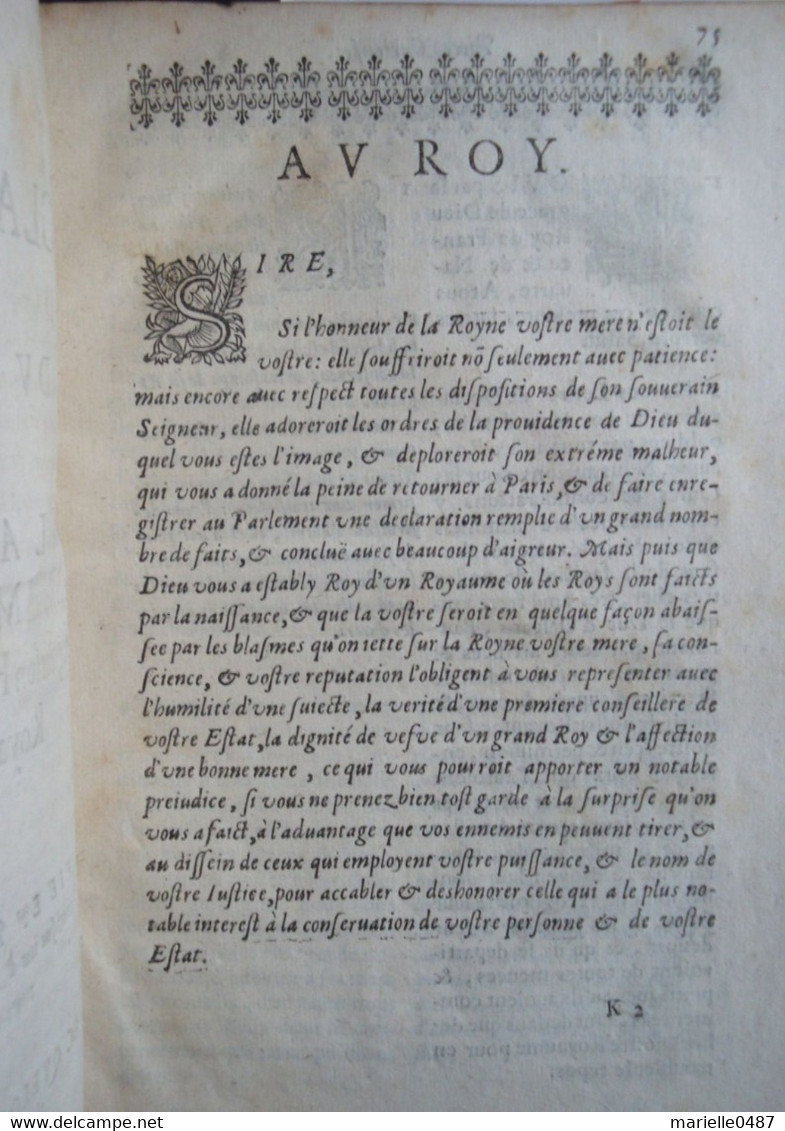 75
AV ROY.
SIRE,
Si l'honneur de la Royne vostre mere n'estoit le
vostre: elle souffriroit nõ seulement auec patience:
mais encore auec respect toutes les dispositions de son souuerain
Seigneur, elle adoreroit les ordres de la prouidence de Dieu du-
quel vous estes l'image, & deploreroit son extréme malheur,
qui vous a donné la peine de retourner à Paris, & de faire enre-
gistrer au Parlement une declaration remplie d'un grand nom-
bre de faits, & concluë auec beaucoup d'aigreur. Mais puis que
Dieu vous a estably Roy d'un Royaume où les Roys sont faicts
par la naissance, & que la vostre seroit en quelque façon abais-
sée par les blasmes qu'on iette sur la Royne vostre mere, sa con-
science, & vostre reputation l'obligent à vous representer auec
l'humilité d'une suiecte, la verité d'une premiere conseillere de
vostre Estat, la dignité de vefve d'un grand Roy & l'affection
d'une bonne mere, ce qui vous pourroit apporter un notable
preiudice, si vous ne prenez bien tost garde à la surprise qu'on
vous a faict, à l'aduantage que vos ennemis en peuuent tirer, &
au dissein de ceux qui employent vostre puissance, & le nom de
vostre Iustice, pour accabler & deshonorer celle qui a le plus no-
table interest à la conseruation de vostre personne & de vostre
Estat.
K 2
marielle0487